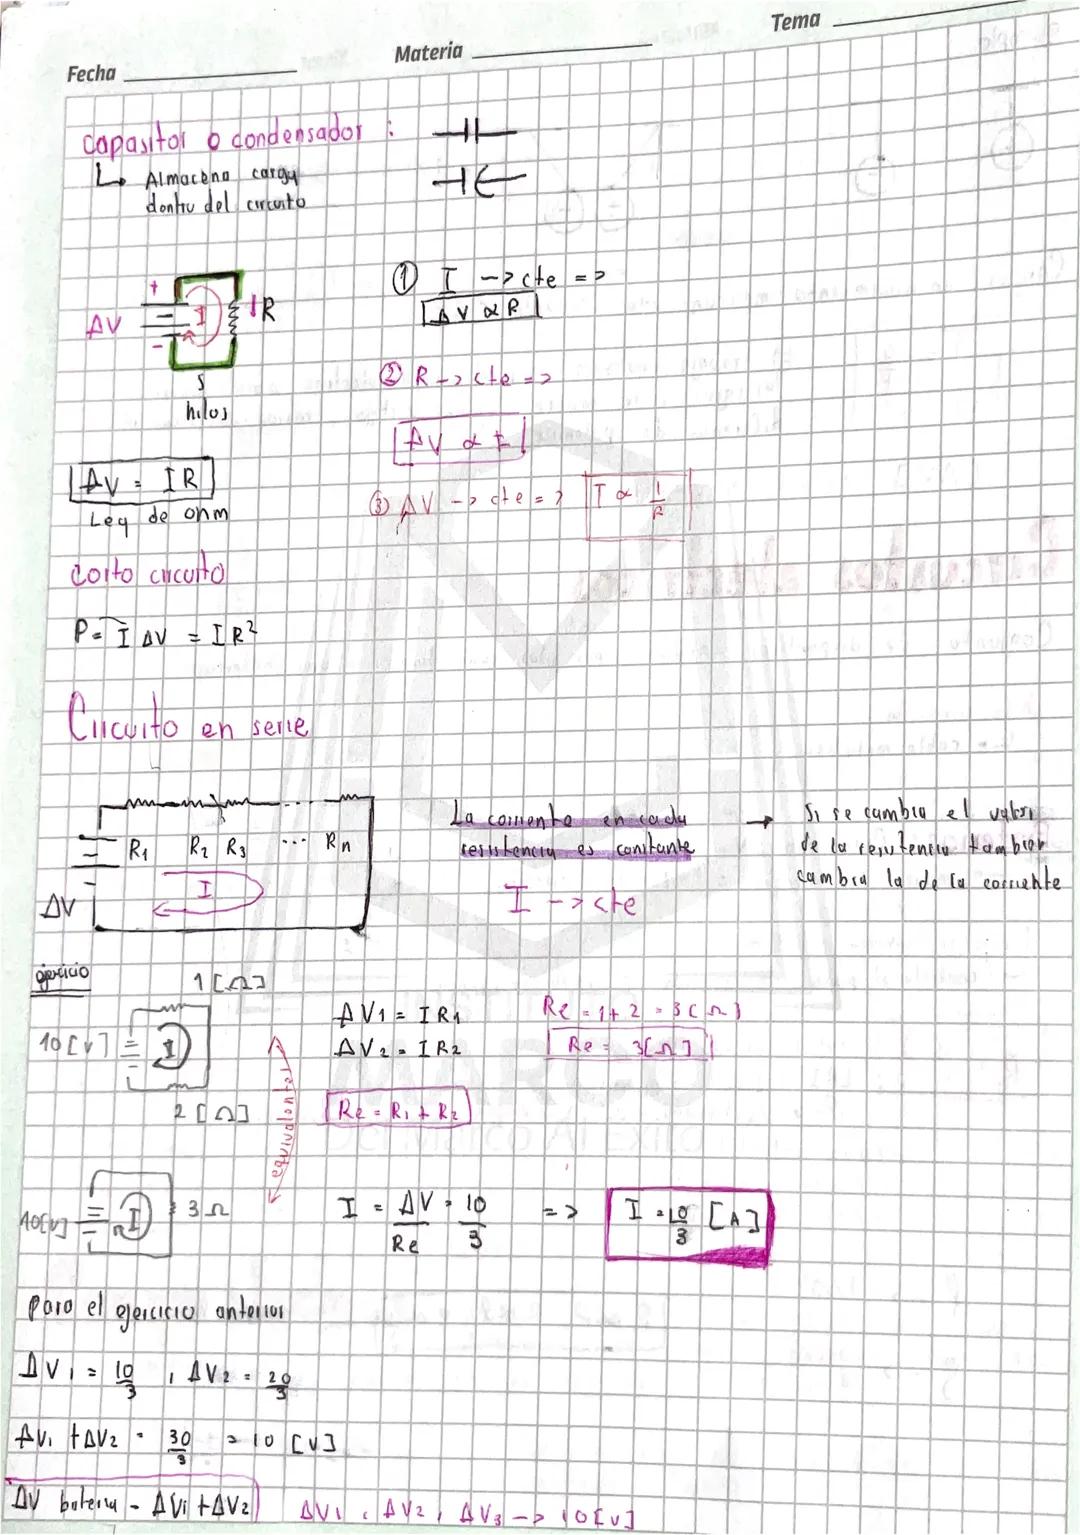 Fecha
Materia
Tema
capasitor o condensador :
↳ Almacena carga
dentro del circuito
+
ΔV
I
R
-
hilos
① I -> cte =>
ΔV ∝ R
② R -> cte =>
ΔV ∝ I
③ ΔV -> cte => I ∝ 1/R
ΔV = IR
Ley de ohm
corto circuito
P = I ΔV = I R²
Circuito en serie
R1 R2 R3 ... Rn
I
ΔV
La corriente en cada
resistencia es constante
I -> cte
→ Si se cambia el valor
de la resistencia tambien
cambia la de la corriente
ejercicio
1 [Ω]
10 [V]
I
2 [Ω]
equivalentes
ΔV1 = I R1
ΔV2 = I R2
Re = R1 + R2
Re = 1 + 2 = 3 [Ω]
Re = 3[Ω]
10[V]
I
3 Ω
I = ΔV/Re = 10/3 => I = 10/3 [A]
para el ejercicio anterior
ΔV1 = 10/3 , ΔV2 = 20/3
ΔV1 + ΔV2 = 30/3 = 10 [V]
ΔV bateria = ΔV1 + ΔV2
ΔV1 , ΔV2 , ΔV3 -> 10[V]
MARCO